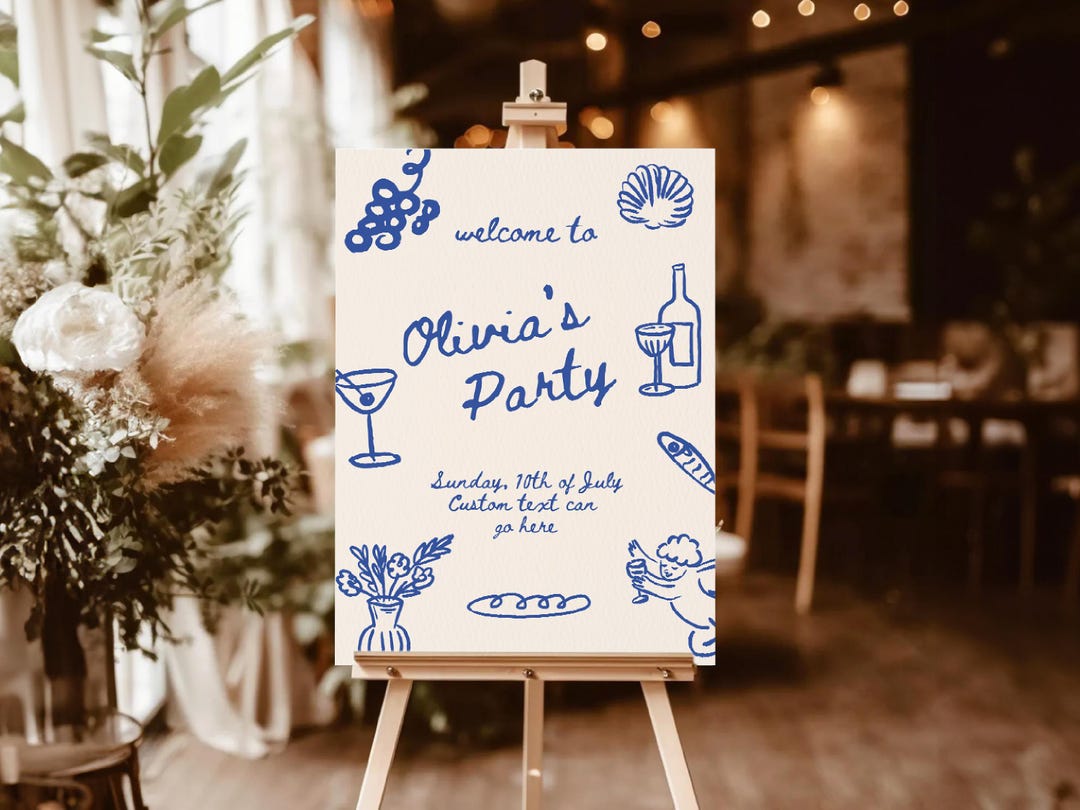 welcome to
Olivia's
Party
Sunday, 10th of July
Custom text can
go here